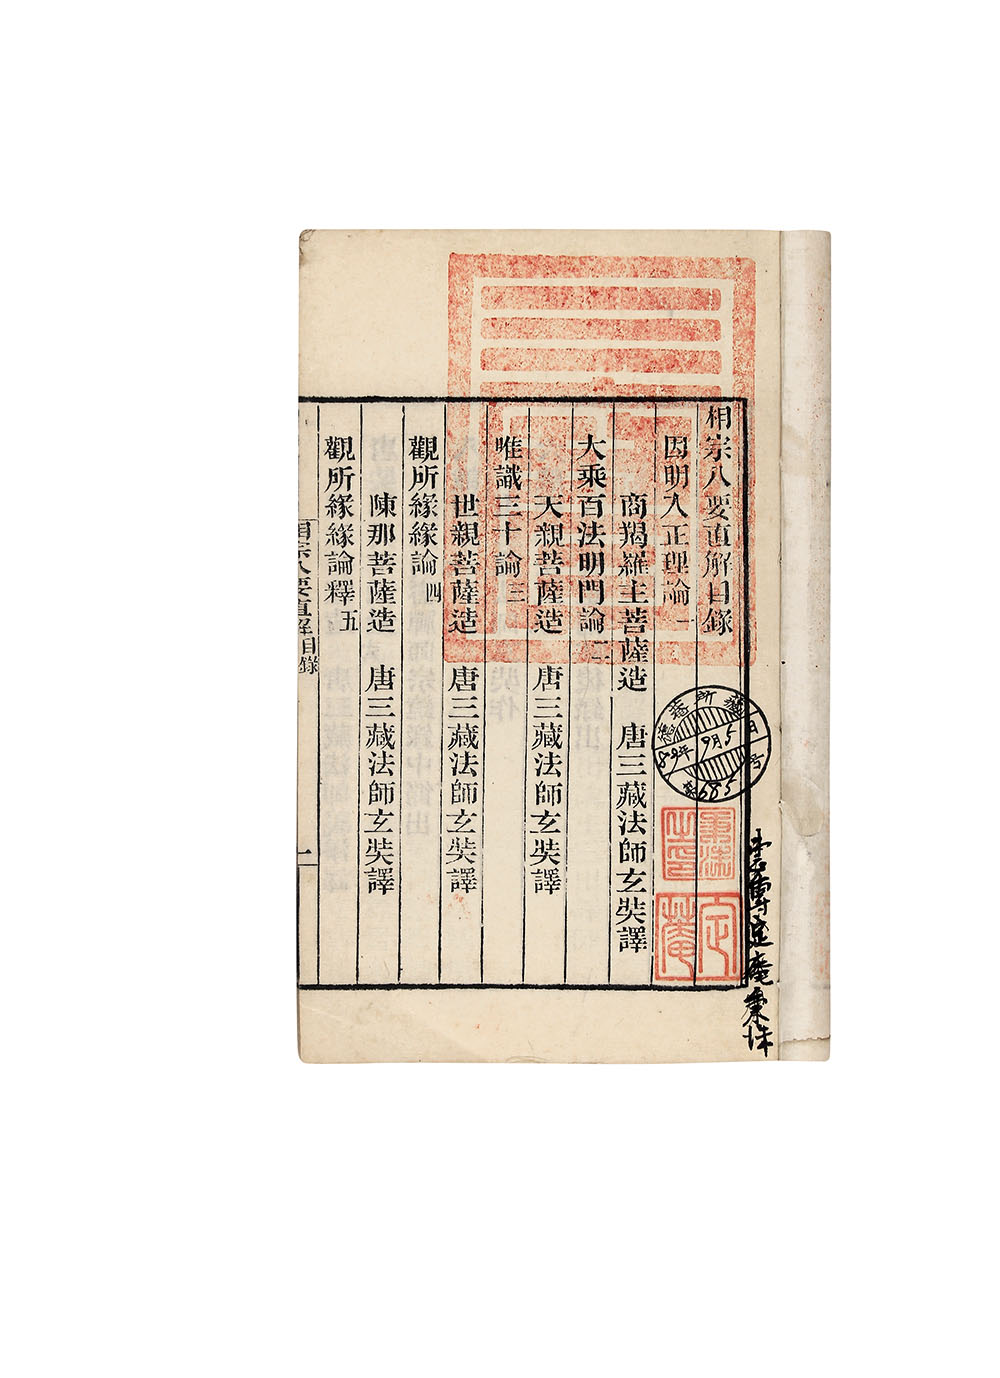 相宗八要直解目錄
因明入正理論一
商羯羅主菩薩造 唐三藏法師玄奘譯
大乘百法明門論二
天親菩薩造 唐三藏法師玄奘譯
唯識三十論三
世親菩薩造 唐三藏法師玄奘譯
觀所緣緣論四
陳那菩薩造 唐三藏法師玄奘譯
觀所緣緣論釋五
相宗八要直解目錄
一
所藏
89年9月5日
685号
定菴